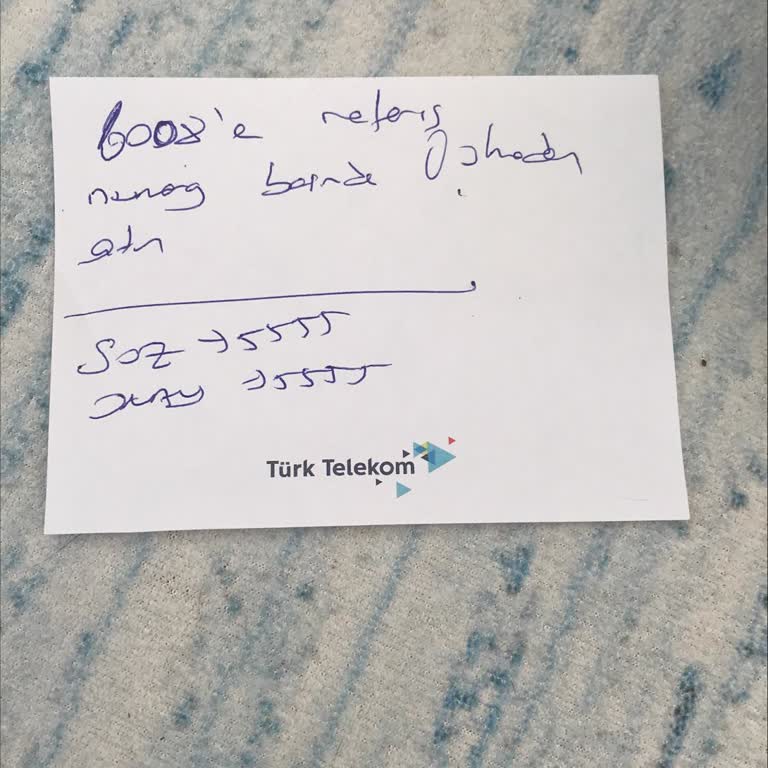 6008'e referans
numara başında 0 olmadan
atın
SOZ → 5555
ONAY → 5555
Türk Telekom